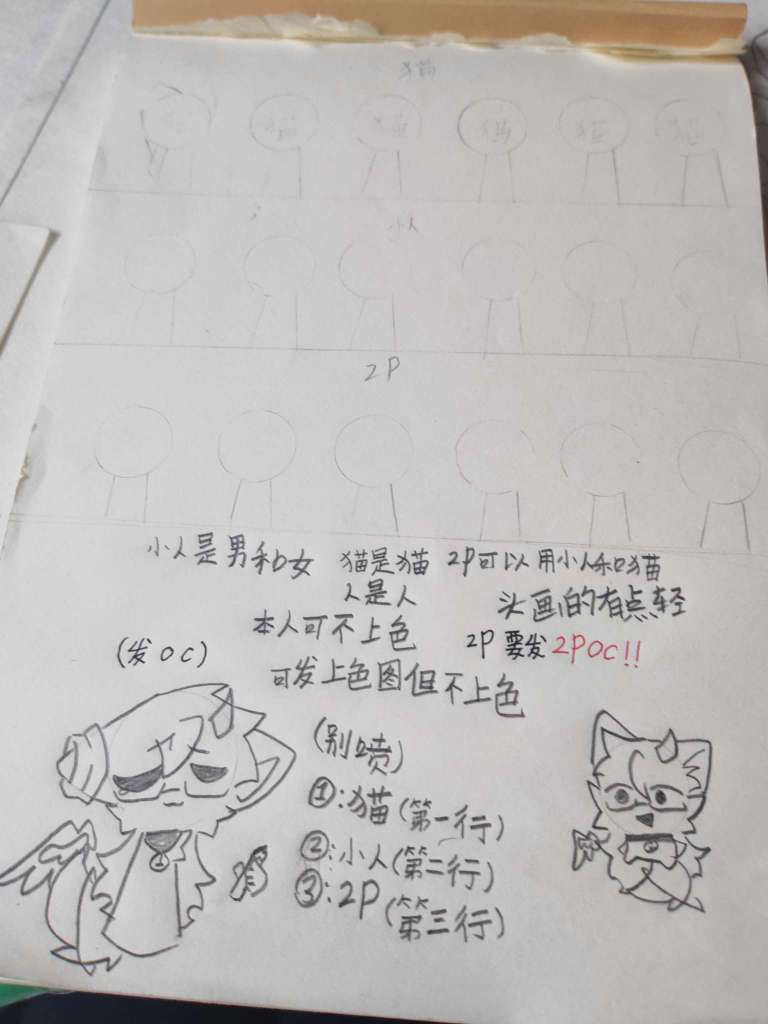 猫
猫 猫 猫 猫 猫
小人
2P
小人是男和女 猫是猫 2P可以用小人和猫
人是人 头画的有点轻
本人可不上色 2P 要发 2POC!!
(发OC)
可发上色图但不上色
(别喷)
①:猫(第一行)
②:小人(第二行)
③:2P(第三行)
1